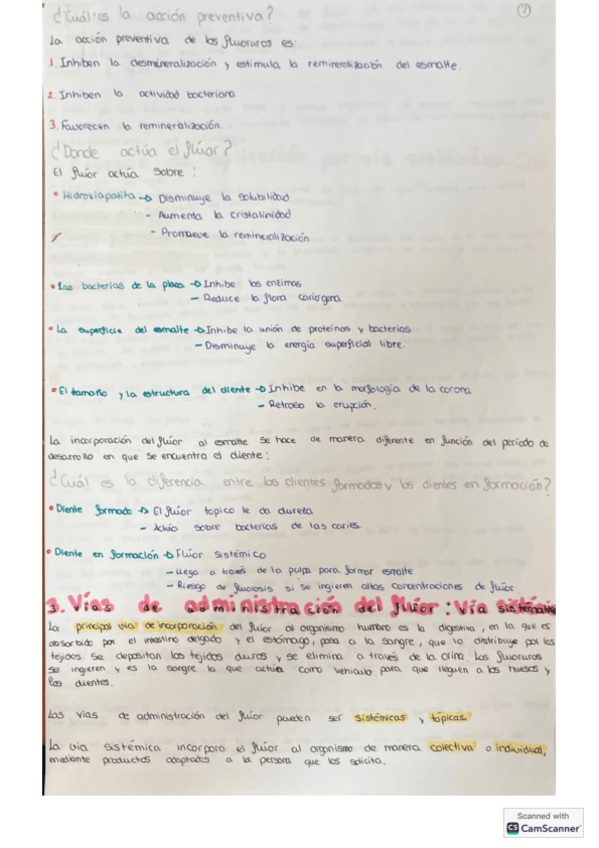 ¿Cuál es la acción preventiva?
La acción preventiva de los fluoruros es:
1. Inhiben la desmineralización y estimula la remineralización del esmalte.
2. Inhiben la actividad bacteriana
3. Favorecen la remineralización.
¿Donde actúa el flúor?
El flúor actúa sobre:
• Hidroxiapatita → Disminuye la solubilidad
- Aumenta la cristalinidad
- Promueve la remineralización
• Las bacterias de la placa → Inhibe las enzimas
- Reduce la flora cariógena
• La superficie del esmalte → Inhibe la unión de proteínas y bacterias
- Disminuye la energía superficial libre.
• El tamaño y la estructura del diente → Inhibe en la morfología de la corona
- Retrasa la erupción.
La incorporación del flúor al esmalte se hace de manera diferente en función del período de
desarrollo en que se encuentra el diente:
¿Cuál es la diferencia entre los dientes formados y los dientes en formación?
• Diente formado → El flúor topico le da dureza
- Actúa sobre bacterias de las caries.
• Diente en formación → Flúor sistémico
- Llega a través de la pulpa para formar esmalte
- Riesgo de fluorosis si se ingieren altas concentraciones de flúor
3. Vías de administración del flúor: Vía sistémica
La principal vía de incorporación del flúor al organismo humano es la digestiva, en la que es
absorbido por el intestino delgado y el estómago, pasa a la sangre, que lo distribuye por los
tejidos se depositan los tejidos duros y se elimina a través de la orina. Los fluoruros
se ingieren y es la sangre la que actúa como vehículo para que lleguen a los huesos y
los dientes.
Las vías de administración del flúor pueden ser sistémicas y tópicas.
La vía sistémica incorpora el flúor al organismo de manera colectiva o individual,
mediante productos adaptados a la persona que los solicita.
Scanned with
CS CamScanner